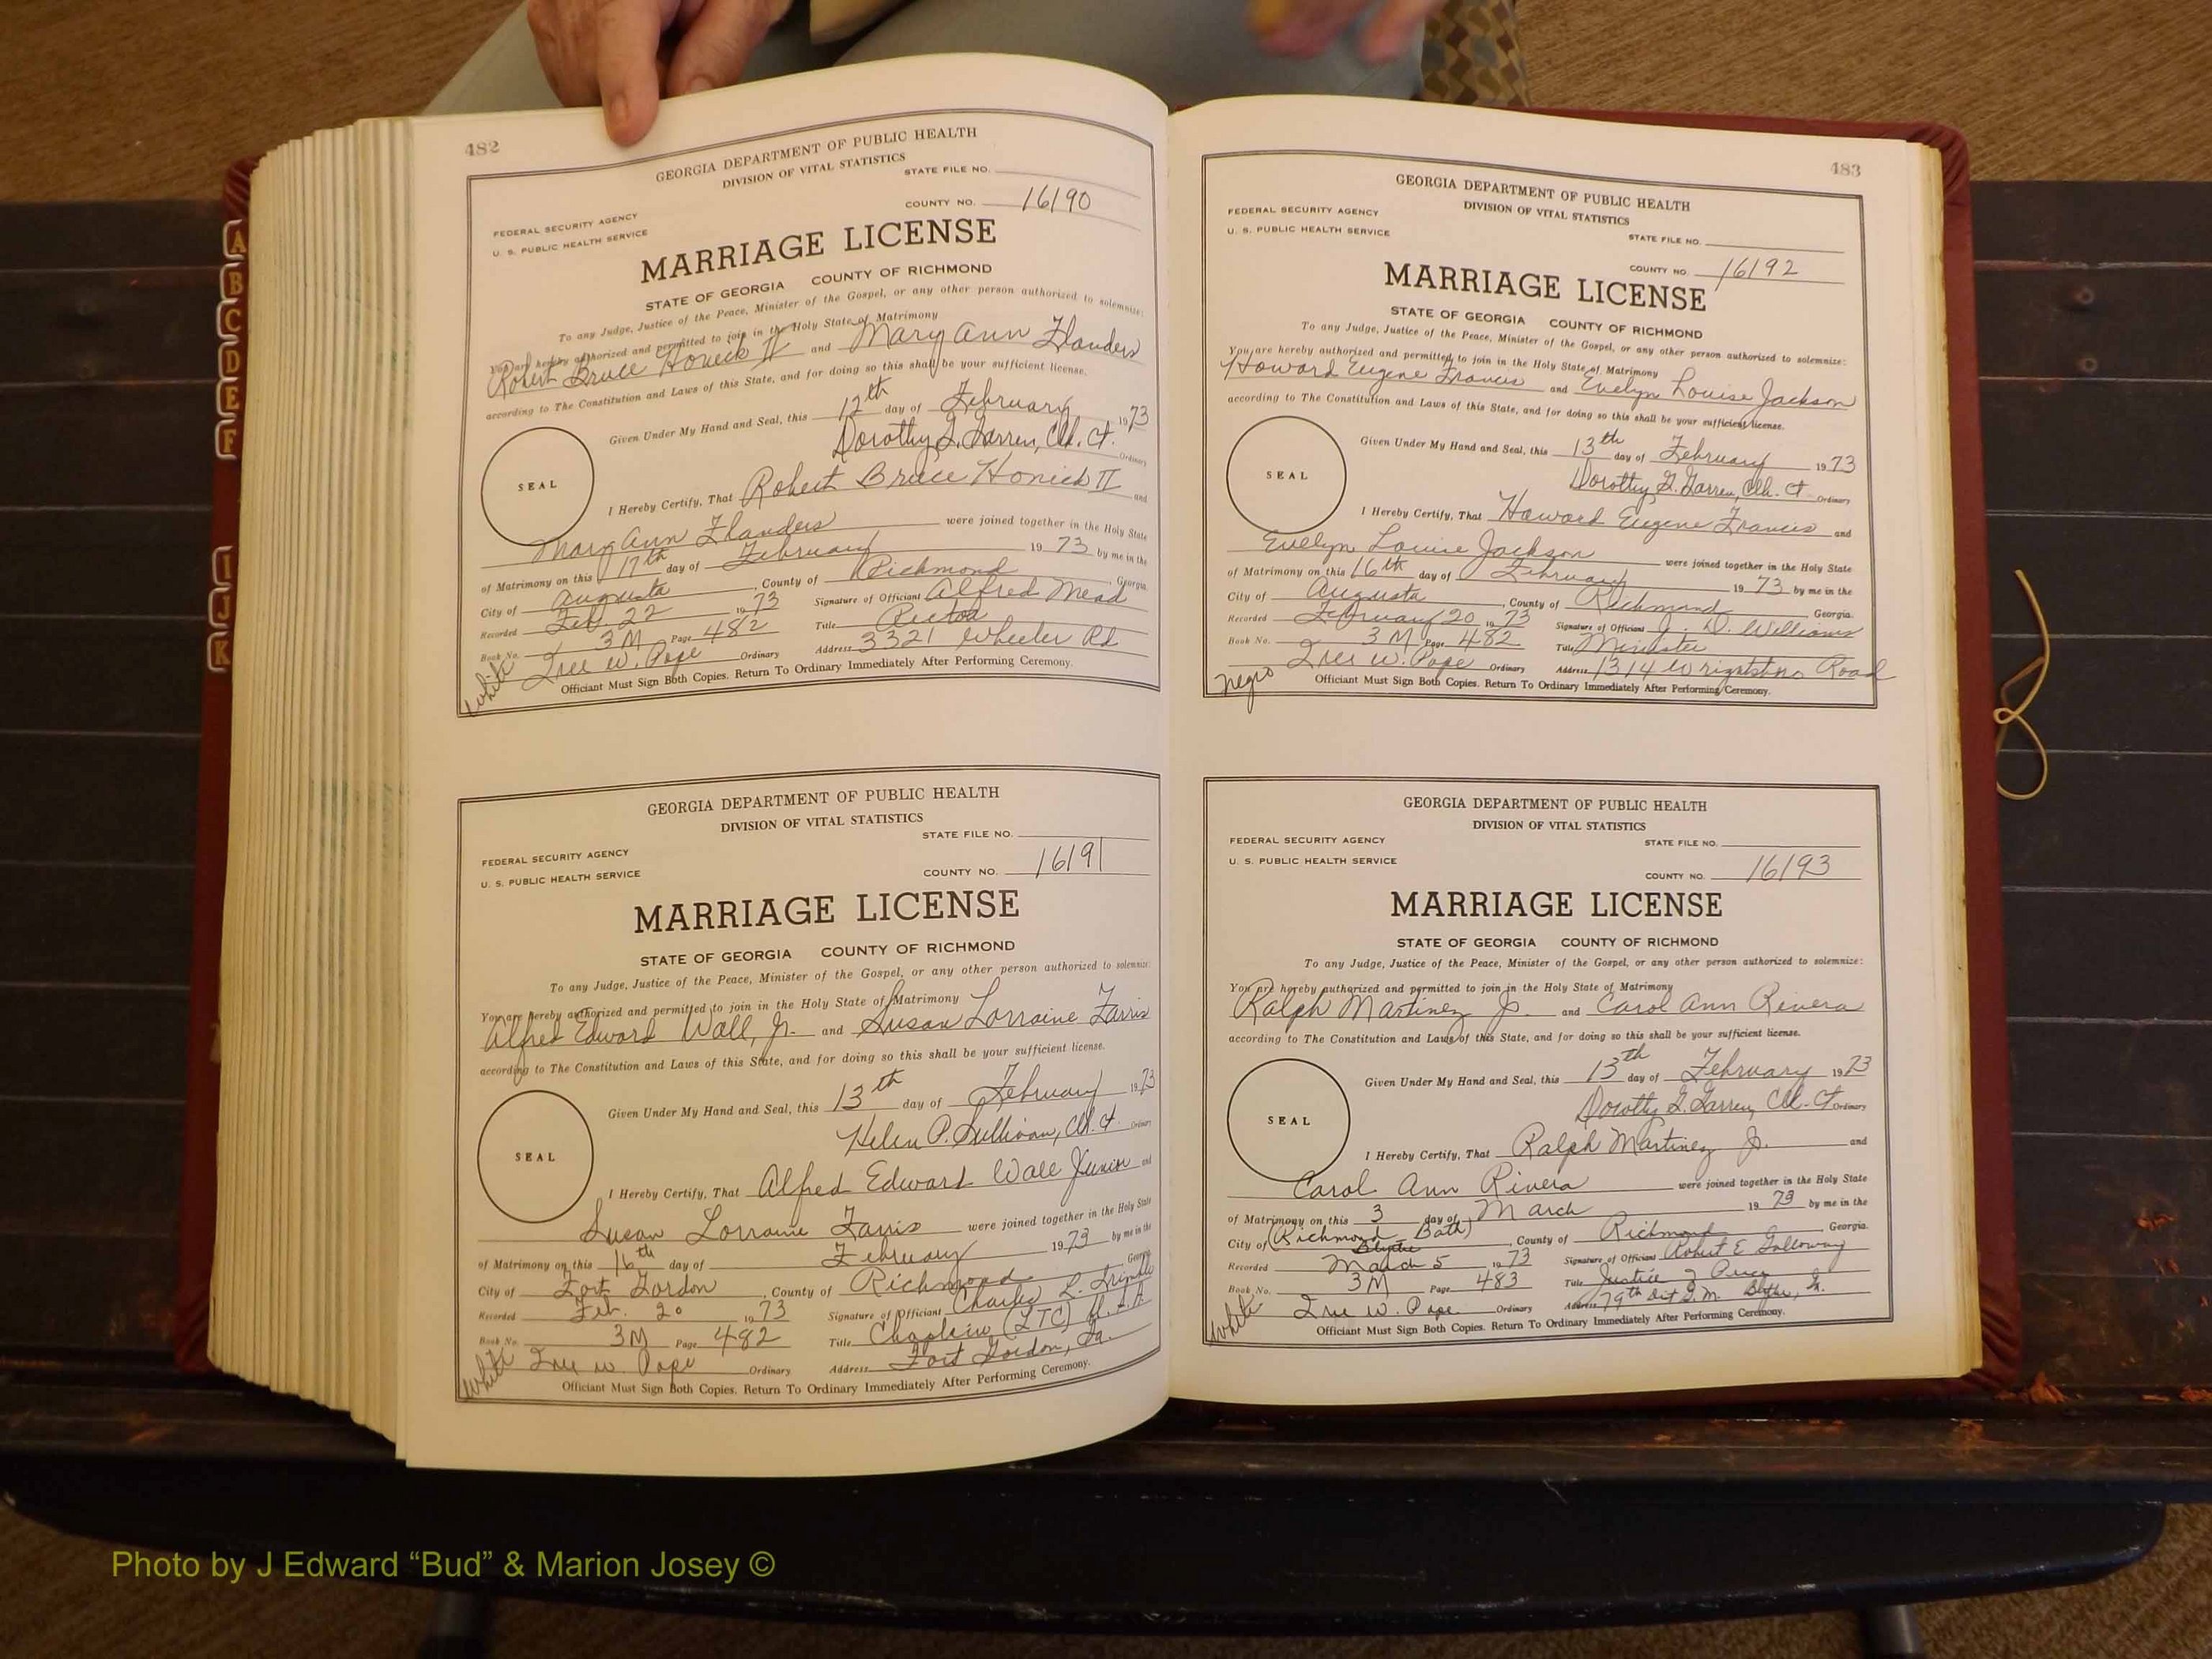 482
GEORGIA DEPARTMENT OF PUBLIC HEALTH
DIVISION OF VITAL STATISTICS
STATE FILE NO.
FEDERAL SECURITY AGENCY
U. S. PUBLIC HEALTH SERVICE
COUNTY NO. 16190
MARRIAGE LICENSE
STATE OF GEORGIA COUNTY OF RICHMOND
To any Judge, Justice of the Peace, Minister of the Gospel, or any other person authorized to solemnize:
You are hereby authorized and permitted to join in the Holy State of Matrimony
Robert Bruce Honick II and Mary Ann Flanders
according to The Constitution and Laws of this State, and for doing so this shall be your sufficient license.
Given Under My Hand and Seal, this 12th day of February 1973
Dorothy G. Garren, Clk. Ct. Ordinary
SEAL
I Hereby Certify, That Robert Bruce Honick II and
Mary Ann Flanders were joined together in the Holy State
of Matrimony on this 17th day of February 1973 by me in the
City of Augusta, County of Richmond, Georgia.
Recorded Feb. 22 1973 Signature of Officiant Alfred Mead
Book No. 3M Page 482 Title Rector
White W. Pope Ordinary Address 3321 Wheeler Rd
Officiant Must Sign Both Copies. Return To Ordinary Immediately After Performing Ceremony.
GEORGIA DEPARTMENT OF PUBLIC HEALTH
DIVISION OF VITAL STATISTICS
STATE FILE NO.
FEDERAL SECURITY AGENCY
U. S. PUBLIC HEALTH SERVICE
COUNTY NO. 16191
MARRIAGE LICENSE
STATE OF GEORGIA COUNTY OF RICHMOND
To any Judge, Justice of the Peace, Minister of the Gospel, or any other person authorized to solemnize:
You are hereby authorized and permitted to join in the Holy State of Matrimony
Alfred Edward Wall, Jr. and Susan Lorraine Farris
according to The Constitution and Laws of this State, and for doing so this shall be your sufficient license.
Given Under My Hand and Seal, this 13th day of February 1973
Helen P. Sullivan, Clk. Ct. Ordinary
SEAL
I Hereby Certify, That Alfred Edward Wall Junior and
Susan Lorraine Farris were joined together in the Holy State
of Matrimony on this 16th day of February 1973 by me in the
City of Fort Gordon, County of Richmond Georgia
Recorded Feb. 20 1973 Signature of Officiant Charles L.
Book No. 3M Page 482 Title Chaplain (LTC)
White W. Pope Ordinary Address Fort Gordon, Ga.
Officiant Must Sign Both Copies. Return To Ordinary Immediately After Performing Ceremony.
483
GEORGIA DEPARTMENT OF PUBLIC HEALTH
DIVISION OF VITAL STATISTICS
FEDERAL SECURITY AGENCY
U. S. PUBLIC HEALTH SERVICE
STATE FILE NO.
COUNTY NO. 16192
MARRIAGE LICENSE
STATE OF GEORGIA COUNTY OF RICHMOND
To any Judge, Justice of the Peace, Minister of the Gospel, or any other person authorized to solemnize:
You are hereby authorized and permitted to join in the Holy State of Matrimony
Howard Eugene Francis and Evelyn Louise Jackson
according to The Constitution and Laws of this State, and for doing so this shall be your sufficient license.
Given Under My Hand and Seal, this 13th day of February 1973
Dorothy G. Garren, Clk. Ct. Ordinary
SEAL
I Hereby Certify, That Howard Eugene Francis and
Evelyn Louise Jackson were joined together in the Holy State
of Matrimony on this 16th day of February 1973 by me in the
City of Augusta, County of Richmond Georgia.
Recorded February 20 1973 Signature of Officiant J. D. Williams
Book No. 3M Page 482 Title Minister
Negro W. Pope Ordinary Address 1314 Wrightsboro Road
Officiant Must Sign Both Copies. Return To Ordinary Immediately After Performing Ceremony.
GEORGIA DEPARTMENT OF PUBLIC HEALTH
DIVISION OF VITAL STATISTICS
FEDERAL SECURITY AGENCY
STATE FILE NO.
U. S. PUBLIC HEALTH SERVICE
COUNTY NO. 16193
MARRIAGE LICENSE
STATE OF GEORGIA COUNTY OF RICHMOND
To any Judge, Justice of the Peace, Minister of the Gospel, or any other person authorized to solemnize:
You are hereby authorized and permitted to join in the Holy State of Matrimony
Ralph Martinez Jr. and Carol Ann Rivera
according to The Constitution and Laws of this State, and for doing so this shall be your sufficient license.
Given Under My Hand and Seal, this 13th day of February 1973
Dorothy G. Garren, Clk. Ct. Ordinary
SEAL
I Hereby Certify, That Ralph Martinez Jr. and
Carol Ann Rivera were joined together in the Holy State
of Matrimony on this 3 day of March 1973 by me in the
City of (Richmond Bath) Blythe, County of Richmond, Georgia.
Recorded March 5 1973 Signature of Officiant Robert E Galloway
Book No. 3M Page 483 Title Justice of Peace
White W. Pope Ordinary Address 79th Dist G.M. Blythe, Ga.
Officiant Must Sign Both Copies. Return To Ordinary Immediately After Performing Ceremony.
A
B
C
D
E
F
I
J
K
Photo by J Edward “Bud” & Marion Josey ©